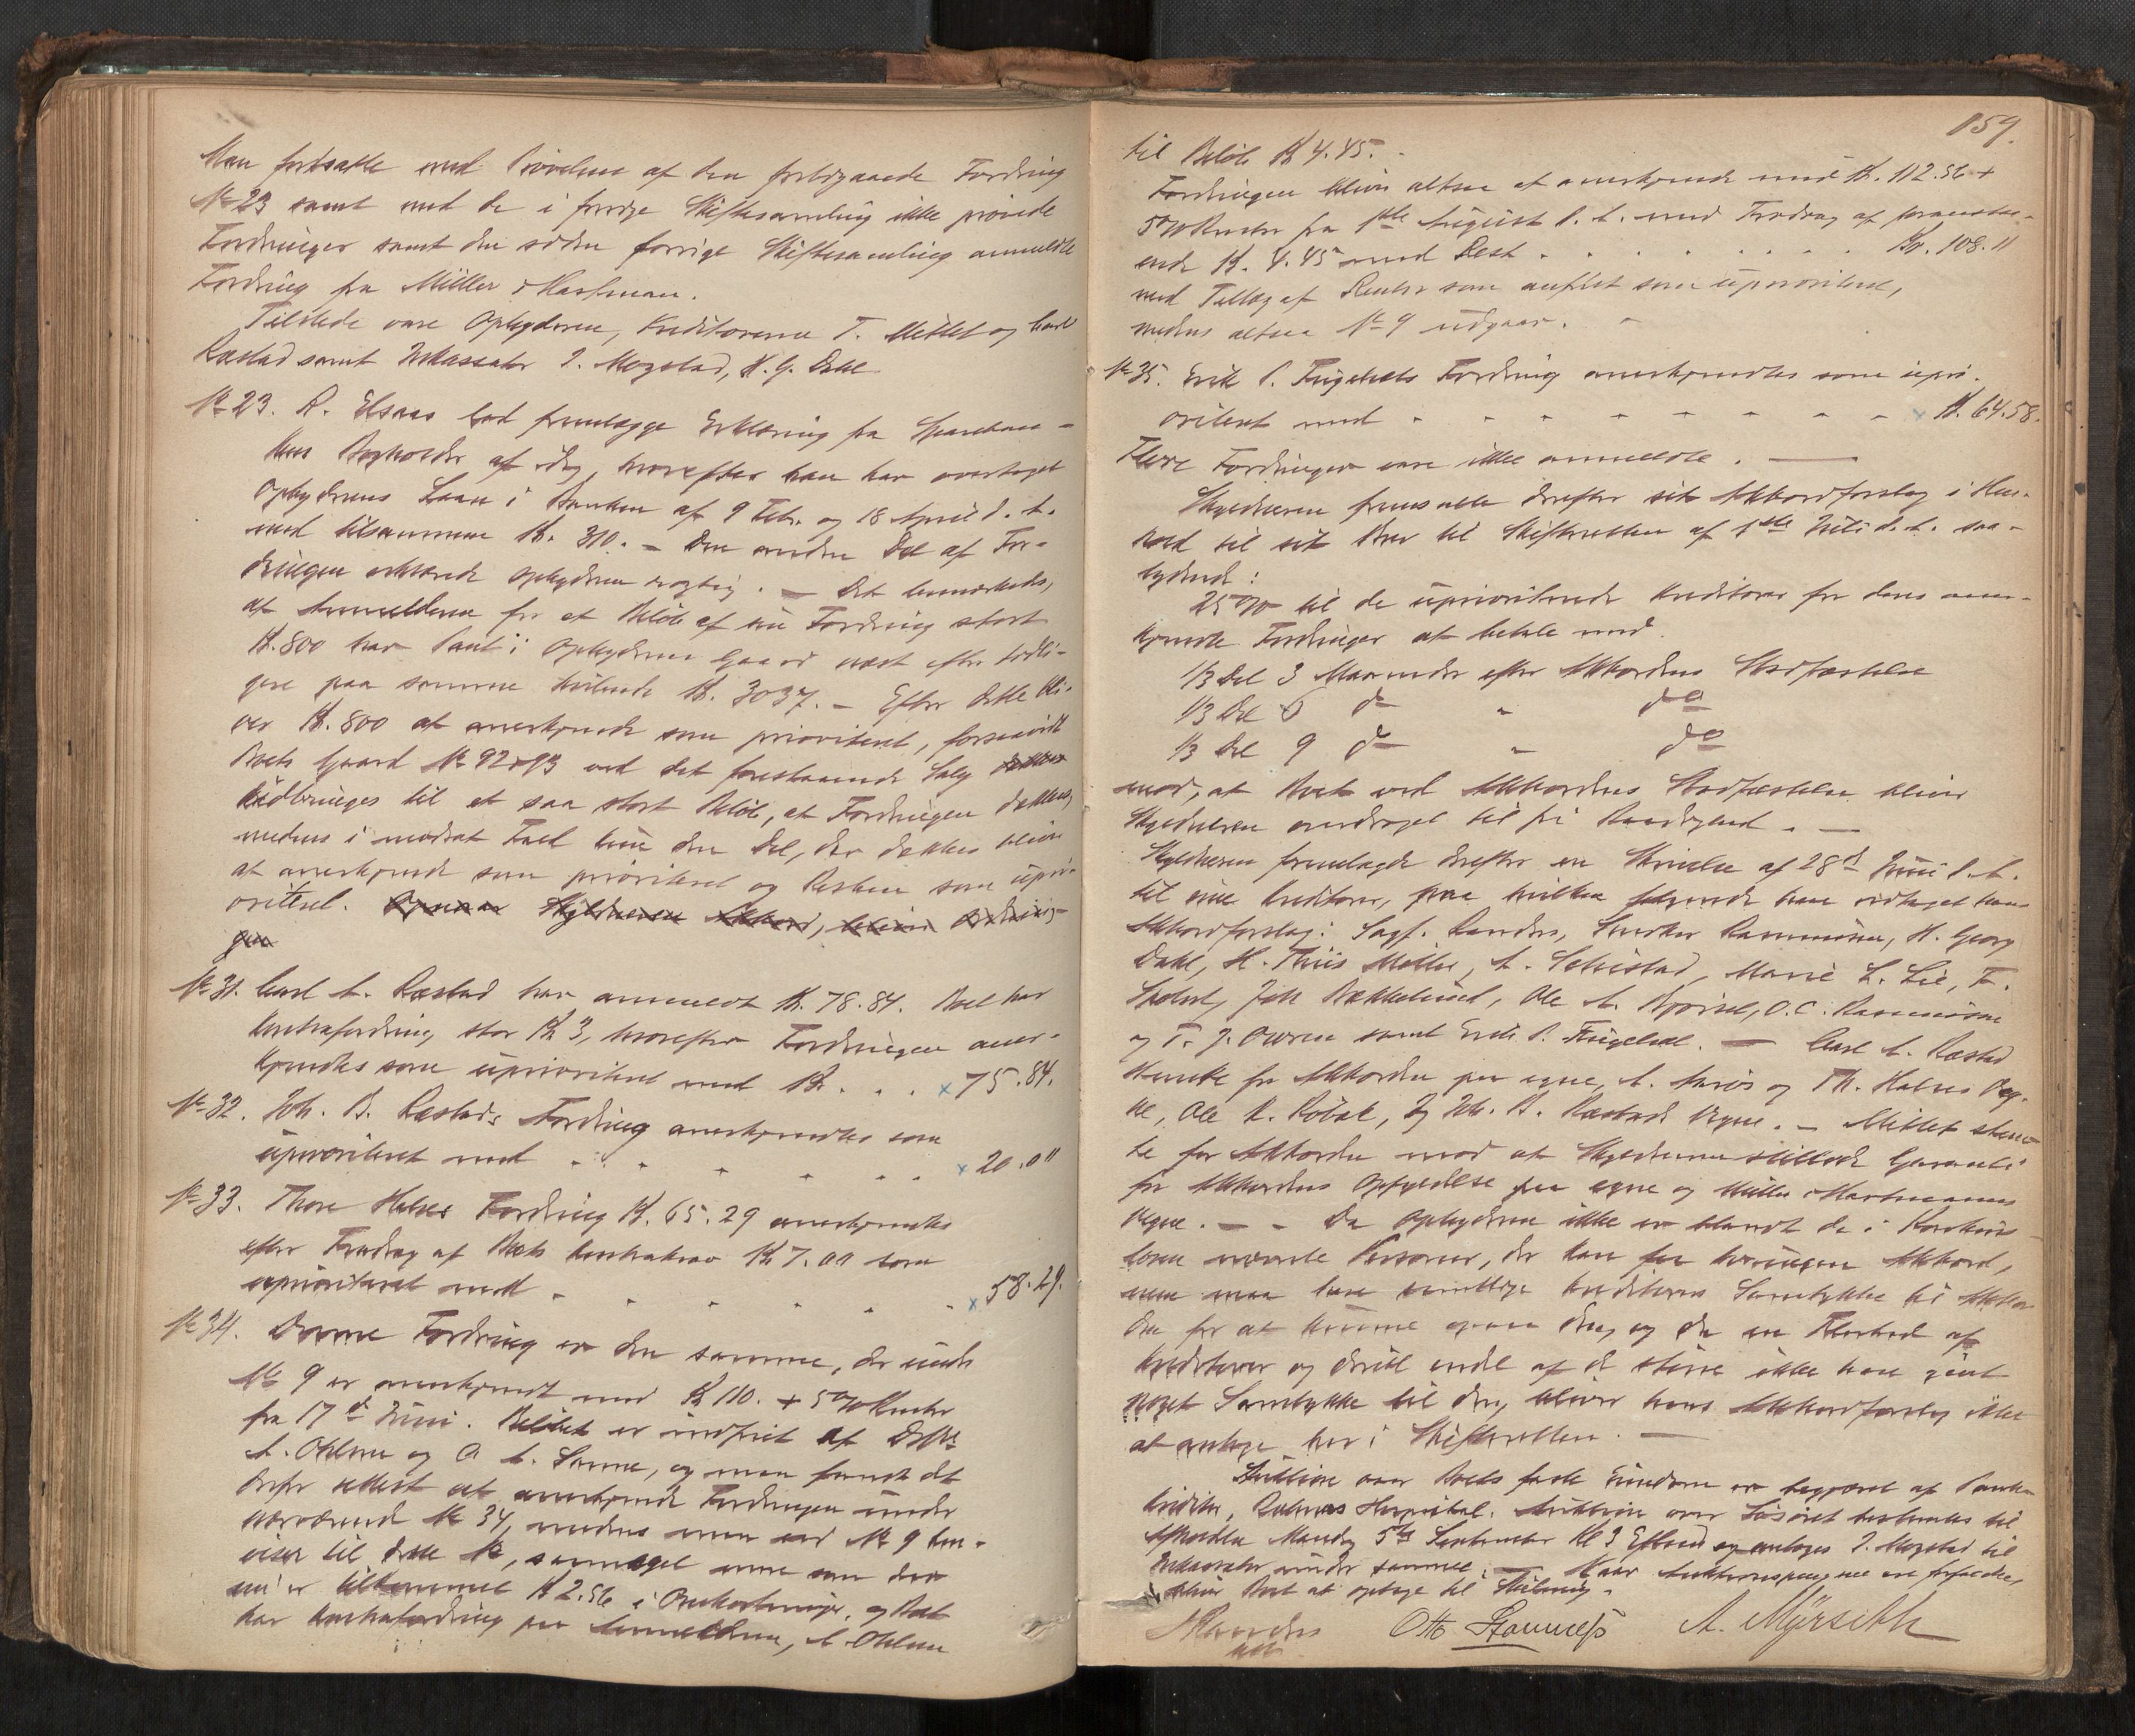 Man fortsatte med Prövelsen af den foreliggaaende Fordring
No 23 samt med de i forrige Skiftesamling ikke prövede
Fordringer samt den siden forrige Skiftesamling anmeldte
Fordring fra Müller & Hartman.
Tilstede vare Opbyderen, Kreditorerne T. Mittet og Carl
Ræstad samt Inkassator I. Mogstad, H. G. Dahl
No 23. R. Elsaas lod fremlægge Erklæring fra Spareban-
kens Bogholder af idag, hvorefter han har overtaget
Opbyderens Laan i Banken af 9 Febr. og 18 April d. A.
med tilsammen Kr. 310. – Den anden Del af For-
dringen erklærede Opbyderen rigtig. – Det bemærkedes,
at Anmelderen for et Belöb af sin Fordring stort
Kr. 800 har Pant i Opbyderens Gaard næst efter tidli-
gere paa samme hvilende Kr. 3037. – Efter dette bli-
ver Kr. 800 at anerkjende som prioriteret, forsaavidt
Boets Gaard No 92 & 93 ved det forestaaende Salg
udbringes til et saa stort Belöb, at Fordringen dækkes,
medens i modsat Fald kun den Del, der dækkes bliver
at anerkjende som prioriteret og Resten som upri-
oriteret. Skylderen Akkord, bliver Fordrin-
gen
No 31. Carl A. Ræstad har anmeldt Kr. 78.84. Boet har
Kontrafordring, stor Kr 3, hvorefter Fordringen aner-
kjendtes som uprioriteret med Kr. . . x 75.84.
No 32. Joh. B. Ræstads Fordring anerkjendtes som
uprioriteret med - - - . . x 20.00
No 33. Thore Helses Fordring Kr. 65.29 anerkjendtes
efter Fradrag af Boets Kontrakrav Kr 7.00 som
uprioriteret med - - - - - x 58.29.
No 34. Denne Fordring er den samme, der under
No 9 er anerkjendt med Kr 110. + 5 % Renter
fra 17de Juni. Belöbet er indfriet af D'Hrr
A. Ohlsen og O A. Sonne, og man fandt det
derfor rettest at anerkjende Fordringen under
nærværende No 34, medens man ved No 9 hen-
viser til dette No, saameget mere som der
nu er tilkommet Kr 2.56 i Omkostninger, og Boet
har Kontrafordring paa Anmelderen, A. Ohlsen
159.
til Belöb Kr 4.45. -
Fordringen bliver altsaa at anerkjende med Kr. 112.56 +
5 % Renter fra 1ste August d. A. med Fradrag af foranstaa-
ende Kr. 4.45 med Rest . . . . . . . Kr. 108.11
med Tillæg af Renter som anfört som uprioriteret,
medens altsaa No 9 udgaar. -
No 35. Erik P. Fugelsets Fordring anerkjendtes som upri-
oriteret med - - - - - - - - x Kr. 64.58.
Flere Fordringer vare ikke anmeldte. —
Skyldneren fremsatte derefter sit Akkordforslag i Hen-
hold til sit Brev til Skifteretten af 1ste Juli d. A. saa-
lydende:
25 % til de uprioriterede Kreditorer for deres aner-
kjendte Fordringer at betale med
1/3 Del 3 Maaneder efter Akkordens Stadfæstelse
1/3 Del 6 do " do
1/3 Del 9 do " do
mod, at Boet ved Akkordens Stadfæstelse bliver
Skyldneren overdraget til fri Raadighed. —
Skyldneren fremlagde derefter en Skrivelse af 28de Juni d. A.
til sine Kreditorer, paa hvilken fölgende have vedtaget hans
Akkordforslag: Sagf. Randers, Snedker Rasmussen, H. Georg
Dahl, H. Thiis Möller, A. Selvistad, Marie L. Lie, F.
Joh Bækkelund, Ole A. Bjorset, O. C. Rasmussen
og T. J. Owren samt Erik P. Fugelset. — Carl A. Ræstad
stemte for Akkorden paa egne, A. Aarös og Th. Helses Veg-
ne, Ole K. Röbek, og Joh. B. Ræstads Vegne. – Mittet stem-
te for Akkorden mod at Skyldneren stillede Garanti
for Akkordens Opfyldelse paa egne og Müller & Hartmanns
Vegne. – – Da Opbyderen ikke er blandt de i Konkurs-
loven nævnte Personer, der kan faa tvungen Akkord,
men maa have samtlige Kreditorers Samtykke til Akkor-
den for at komme igjennem dermed, og da en Flerhed af
Kreditorer og dertil endel af de större ikke have givet
noget Samtykke til den, bliver hans Akkordforslag ikke
at antage her i Skifteretten. —
Auktion over Boets faste Eiendom er begjæret af Pante-
kreditor, Reknes Hospital. Auktion over Lösöret bestemtes til
Afholdelse Mandag 5te September Kl 3 Efterm. og antoges I. Mogstad til
Inkassator under samme. — Naar Auktionspengene ere forfaldne,
bliver Boet at optage til Slutning.
Randers Otto Stannes A. Myrseth